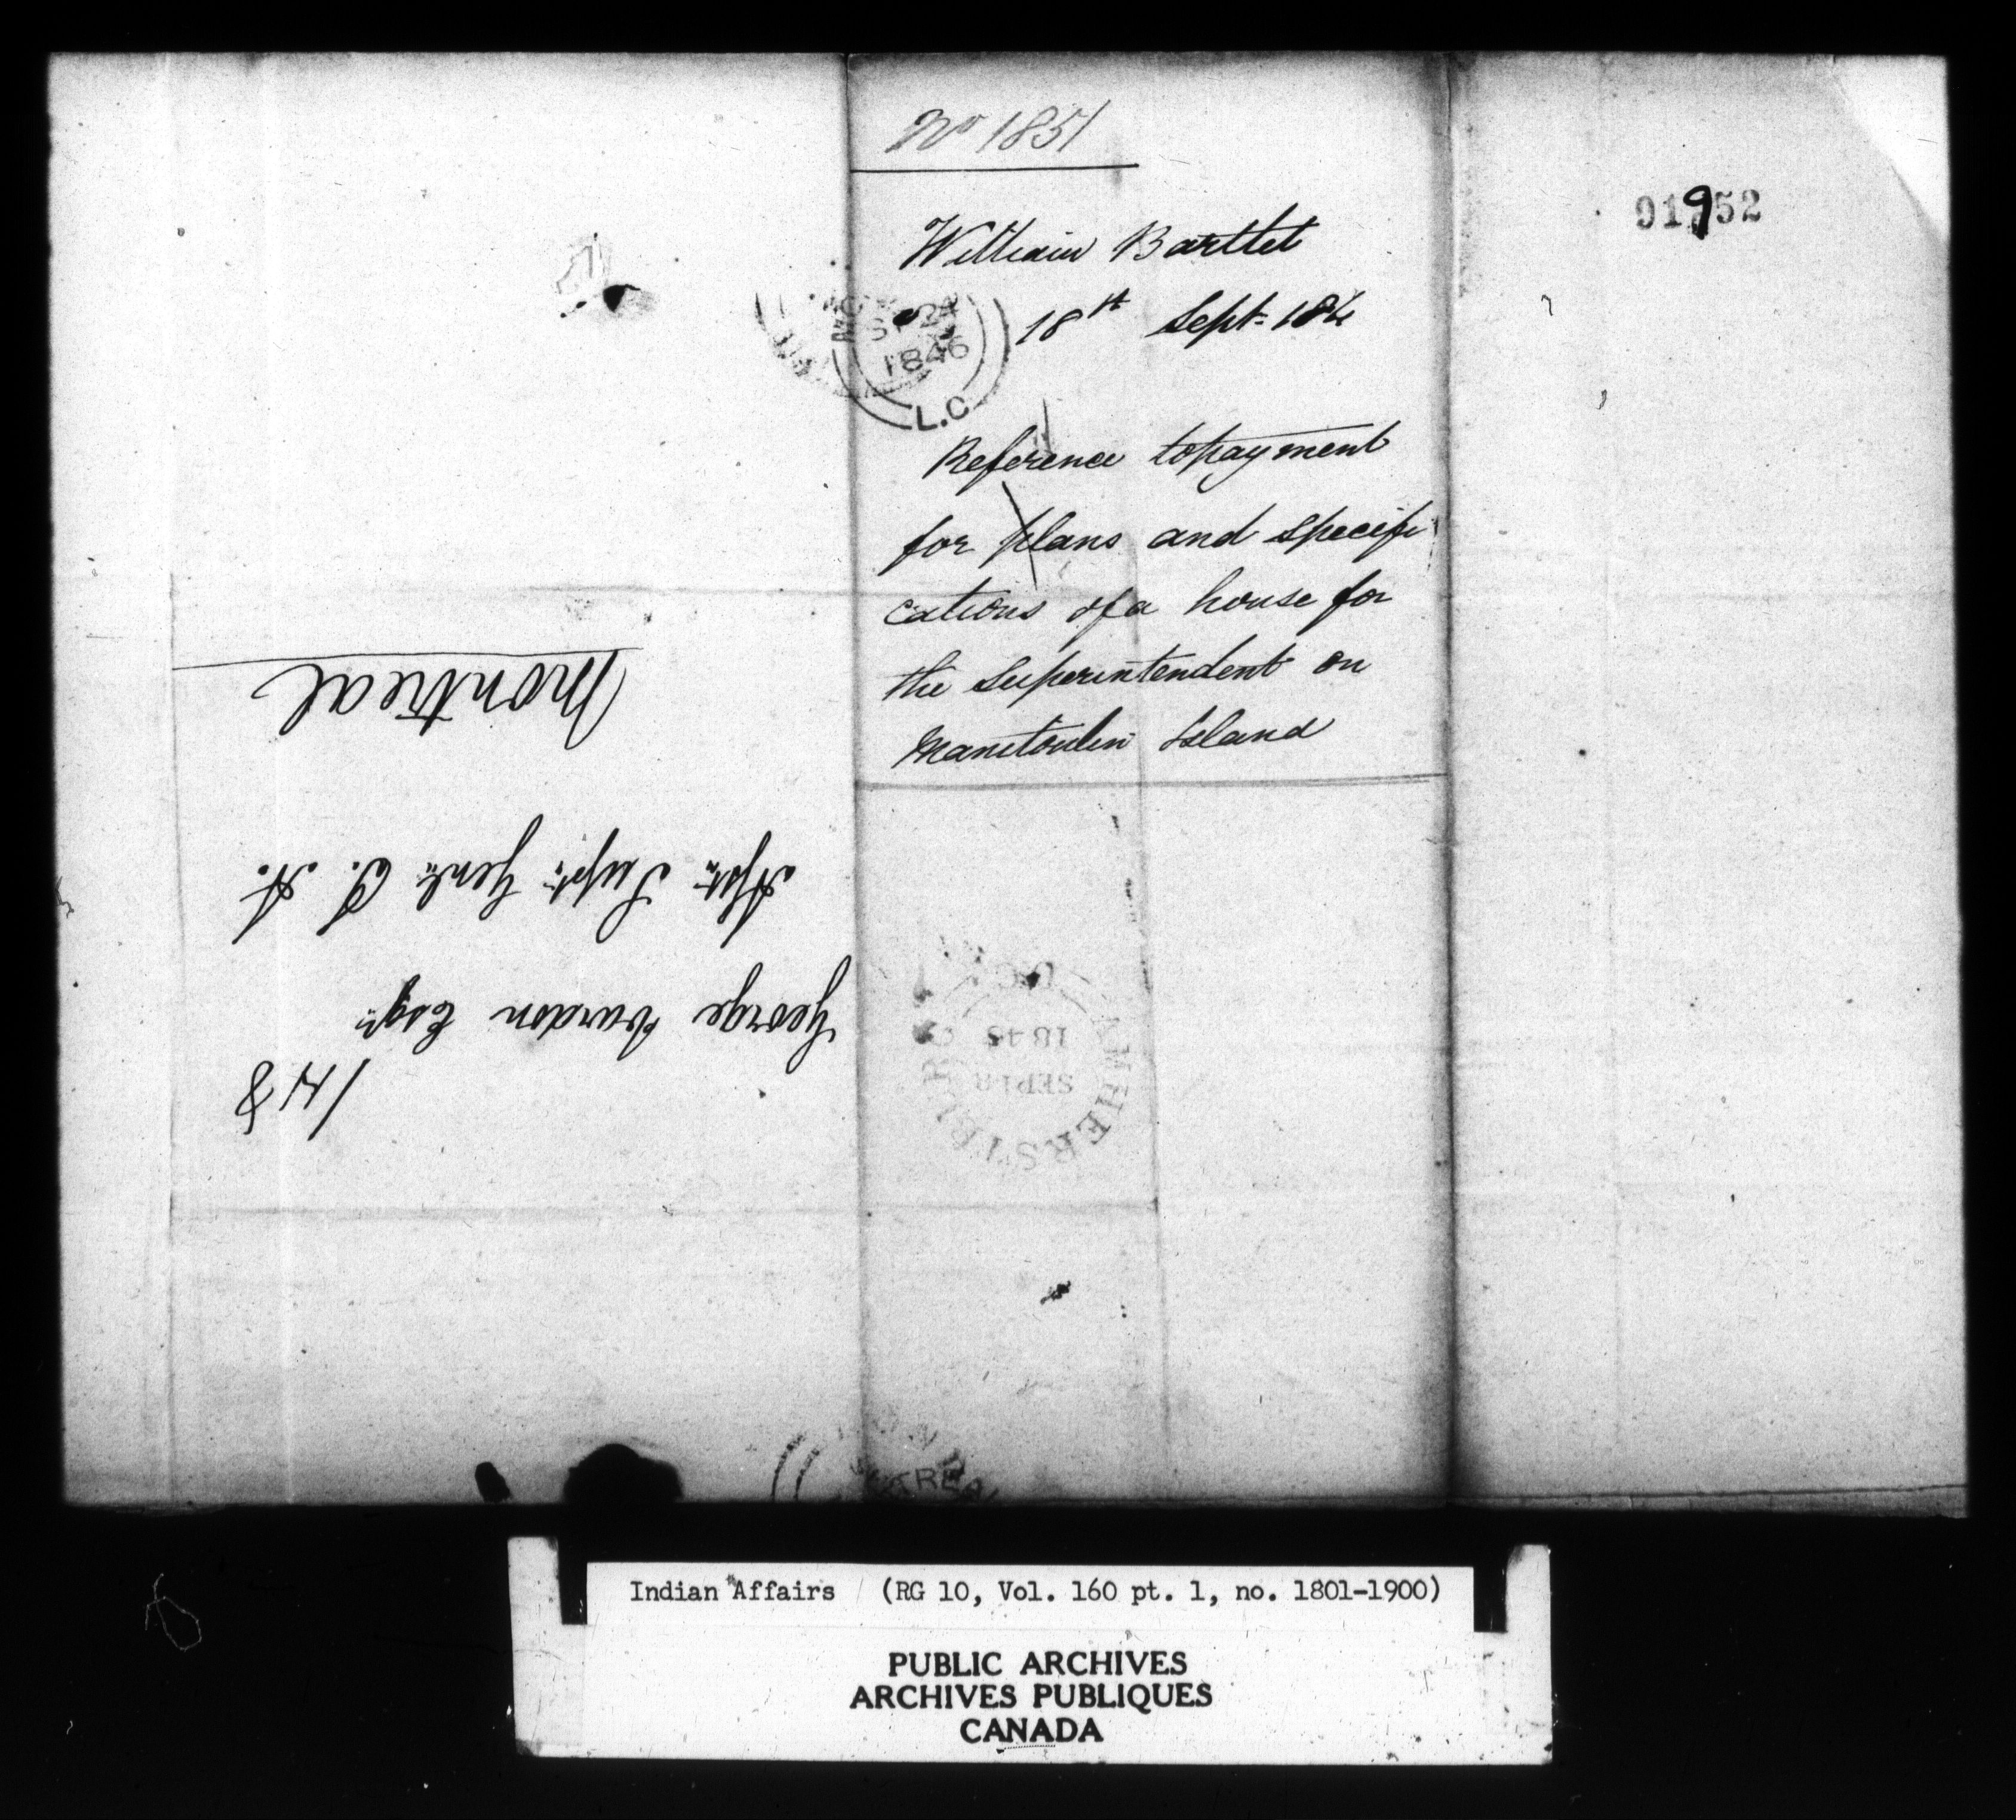 No 1851
William Bartlet
18th Sept. 184
Reference to payment
for plans and specifi
cations of a house for
the Superintendent on
Manitoulin Island
91952
SP 24
1846
L.C
1/4 8
George Vardon Esqr
Asst. Supt. Genl. I. A.
Montreal
AMHERSTBURG
SEP 18
1846
U.C.
Indian Affairs (RG 10, Vol. 160 pt. 1, no. 1801-1900)
PUBLIC ARCHIVES
ARCHIVES PUBLIQUES
CANADA